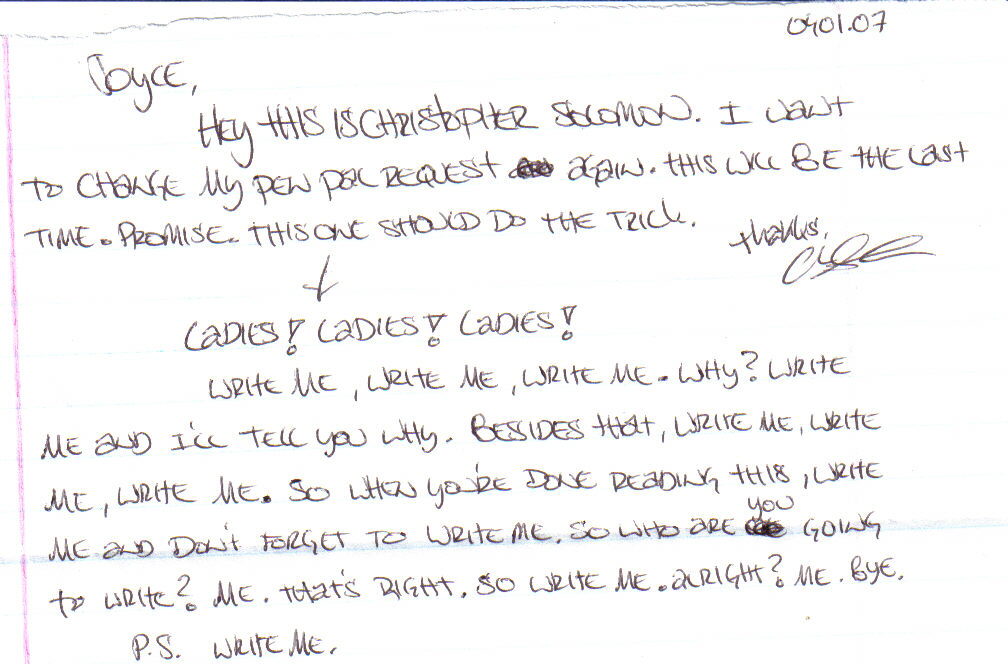 0401.07
Joyce,
Hey this is Christopher Solomon. I want
to change my pen pal request again. This will be the last
time. Promise. This one should do the trick.
thanks,
Ladies! Ladies! Ladies!
Write me, write me, write me. Why? Write
me and I'll tell you why. Besides that, write me, write
me, write me. So when you're done reading this, write
me and don't forget to write me. So who are you going
to write? Me. That's right. So write me. Alright? Me. Bye.
P.S. Write me.